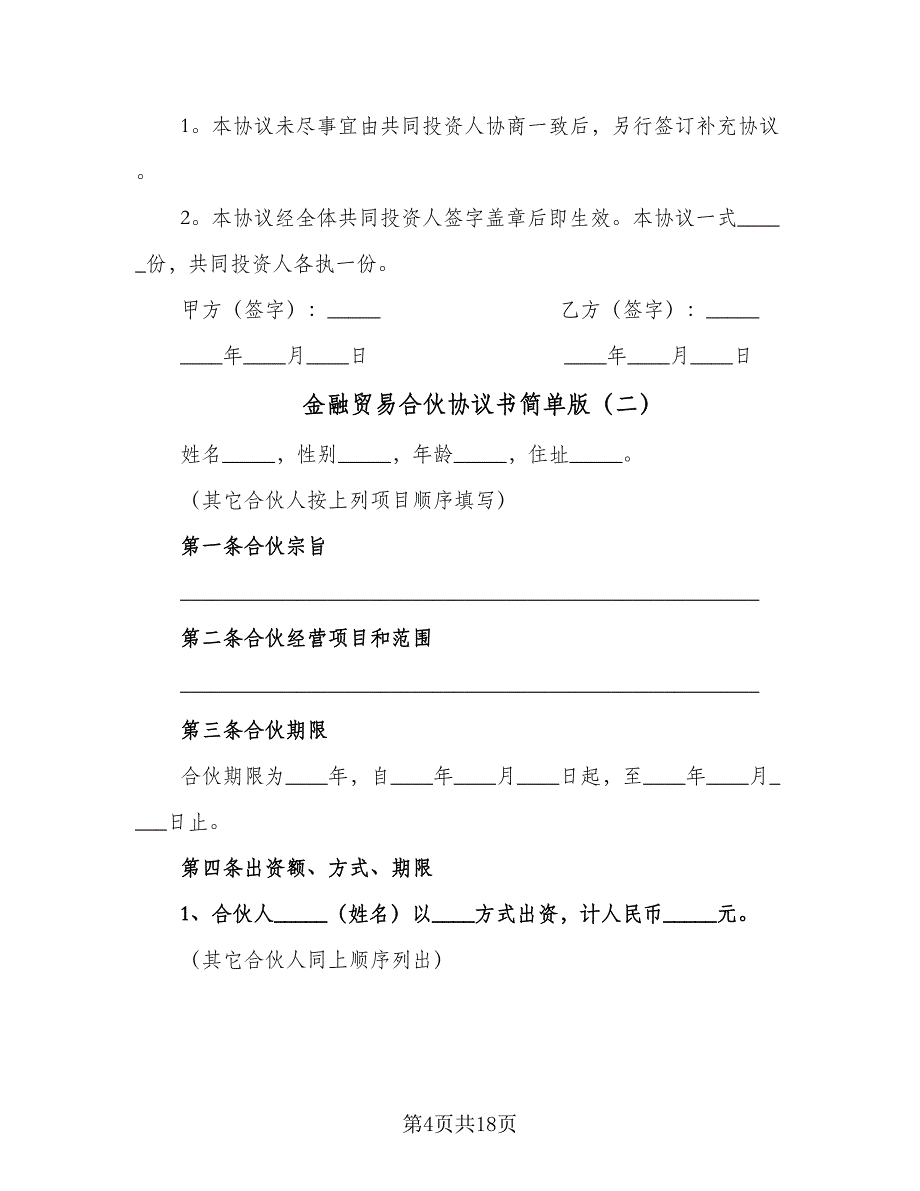 1。本协议未尽事宜由共同投资人协商一致后，另行签订补充协议
。
2。本协议经全体共同投资人签字盖章后即生效。本协议一式____
_份，共同投资人各执一份。
甲方（签字）：_____ 乙方（签字）：_____
____年____月____日 ____年____月____日
金融贸易合伙协议书简单版（二）
姓名_____，性别_____，年龄_____，住址_____。
（其它合伙人按上列项目顺序填写）
第一条合伙宗旨
_______________________________________________________
第二条合伙经营项目和范围
_______________________________________________________
第三条合伙期限
合伙期限为____年，自____年____月____日起，至____年____月_
___日止。
第四条出资额、方式、期限
1、合伙人_____（姓名）以____方式出资，计人民币_____元。
（其它合伙人同上顺序列出）
第4页共18页